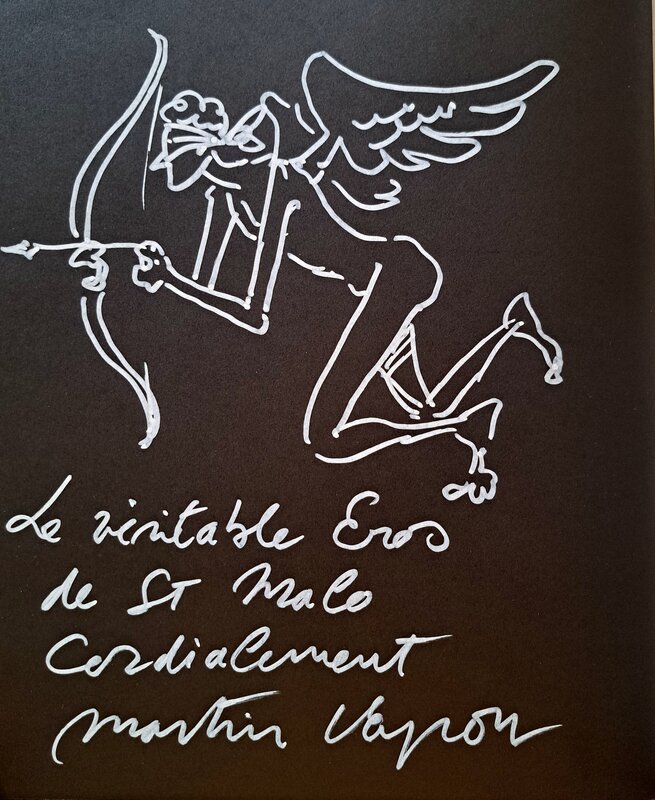 Le véritable Eros
de St Malo
Cordialement
Martin Vayron